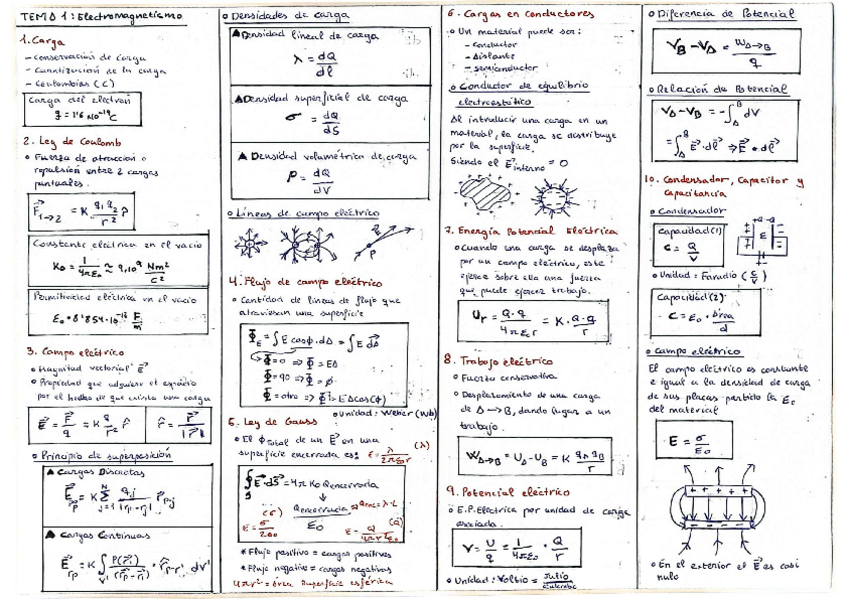 TEMA 1: Electromagnetismo
1. Carga
- Conservación de carga
- Cuantización de la carga
- Coulombios (C)
Carga del electrón
q = 1'6 x10⁻¹⁹ C
2. Ley de Coulomb
• Fuerza de atracción o
repulsión entre 2 cargas
puntuales.
F⃗₁→₂ = K q₁q₂/r² r̂
Constante eléctrica en el vacío
K₀ = 1/4πε₀ ≈ 9·10⁹ Nm²/C²
Permitividad eléctrica en el vacío
ε₀ = 8'854·10⁻¹² F/m
3. Campo eléctrico
• Magnitud vectorial E⃗
• Propiedad que adquiere el espacio
por el hecho de que exista una carga
E⃗ = F⃗/q = K q/r² r̂
r̂ = r⃗/|r⃗|
• Principio de superposición
▲ Cargas Discretas
▲ Cargas Continuas
• Densidades de carga
▲ Densidad lineal de carga
λ = dQ/dl
▲ Densidad superficial de carga
σ = dQ/dS
▲ Densidad volumétrica de carga
ρ = dQ/dV
• Líneas de campo eléctrico
4. Flujo de campo eléctrico
• Cantidad de líneas de flujo que
atraviesan una superficie
Φ_E = ∫E cosφ·dA = ∫E⃗ dA⃗
Φ=0 => Φ = EA
Φ=90 => Φ = ∅
Φ = otro => Φ = EAcos(φ)
• Unidad: Weber (Wb)
5. Ley de Gauss
• El Φtotal de un E⃗ en una
superficie encerrada es: E = λ/2πε₀r (λ)
∮E⃗·dS⃗ = 4πK₀ Qencerrada
= Qencerrada/ε₀ => Qenc = λ·L
(σ) E = σ/2ε₀
* Flujo positivo = cargas positivas
* Flujo negativo = cargas negativas
4πr² = área superficie esférica
6. Cargas en conductores
• Un material puede ser:
- conductor
- Aislante
- semiconductor
• Conductor de equilibrio
electroestático
Al introducir una carga en un
material, la carga se distribuye
por la superficie.
Siendo el E⃗interno = 0
7. Energía Potencial Eléctrica
• Cuando una carga se desplaza
por un campo eléctrico, este
ejerce sobre ella una fuerza
que puede ejercer trabajo.
Ur = Q·q/4πε₀r = K·Q·q/r
8. Trabajo eléctrico
• Fuerza conservativa
• Desplazamiento de una carga
de A → B, dando lugar a un
trabajo.
W_A→B = U_A - U_B = K q_A q_B/r
9. Potencial eléctrico
• E.P.Eléctrica por unidad de carga
asociada.
V = U/q = 1/4πε₀ · Q/r
• Unidad: Voltio = Julio/Culombio
• Diferencia de Potencial
V_B - V_A = W_A→B/q
• Relación de Potencial
V_A - V_B = -∫_A^B dV
= ∫_A^B E⃗·dl⃗ => E⃗·dl⃗
10. Condensador, Capacitor y
Capacitancia
• Condensador
Capacidad(1)
C = Q/V
E
• Unidad: Faradio (C/V)
Capacidad(2):
C = ε₀ · área/d
• Campo eléctrico
El campo eléctrico es constante
e igual a la densidad de carga
de sus placas partido la ε₀
del material
E = σ/ε₀
• En el exterior el E⃗ es casi
nulo